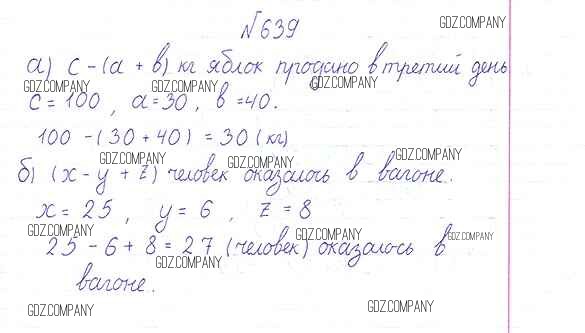 GDZ.COMPANY
№639
а) с - (а + в) кг яблок продано в третий день
GDZ.COMPANY GDZ.COMPANY GDZ.COMPANY
с = 100, а = 30, в = 40.
100 - (30 + 40) = 30 (кг)
GDZ.COMPANY GDZ.COMPANY GDZ.COMPANY
б) (x - y + z) человек оказалось в вагоне.
x = 25, y = 6, z = 8
GDZ.COMPANY GDZ.COMPANY GDZ.COMPANY
25 - 6 + 8 = 27 (человек) оказалось в
GDZ.COMPANY
вагоне.
GDZ.COMPANY GDZ.COMPANY